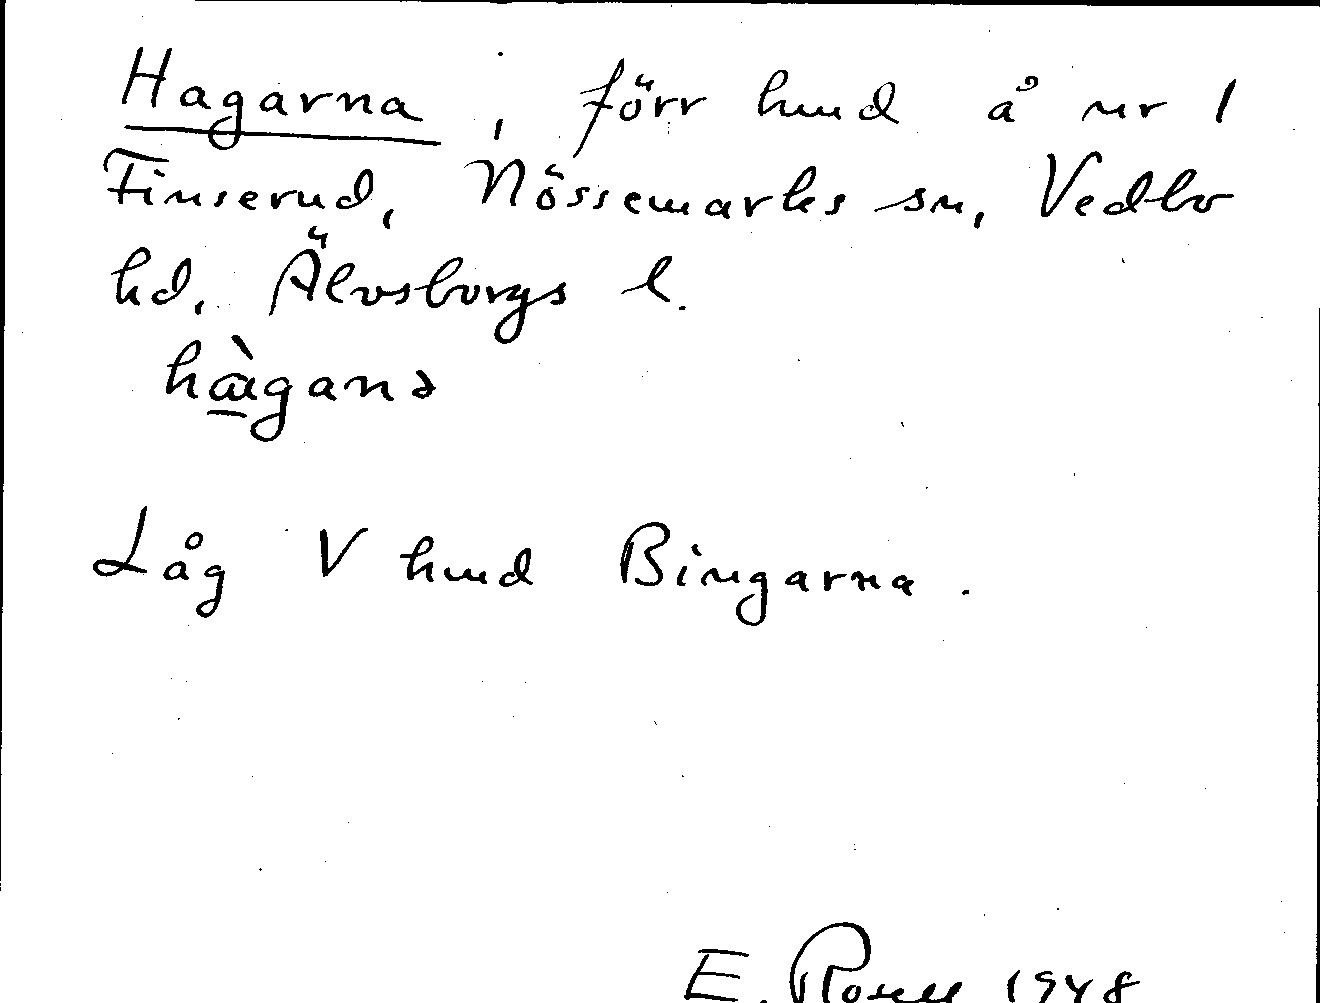 Hagarna, förr hmd å nr 1
Finserud, Nössemarks sn, Vedbo
hd, Älvsborgs l.
hàganə
Låg V hmd Bingarna.
E. 1948